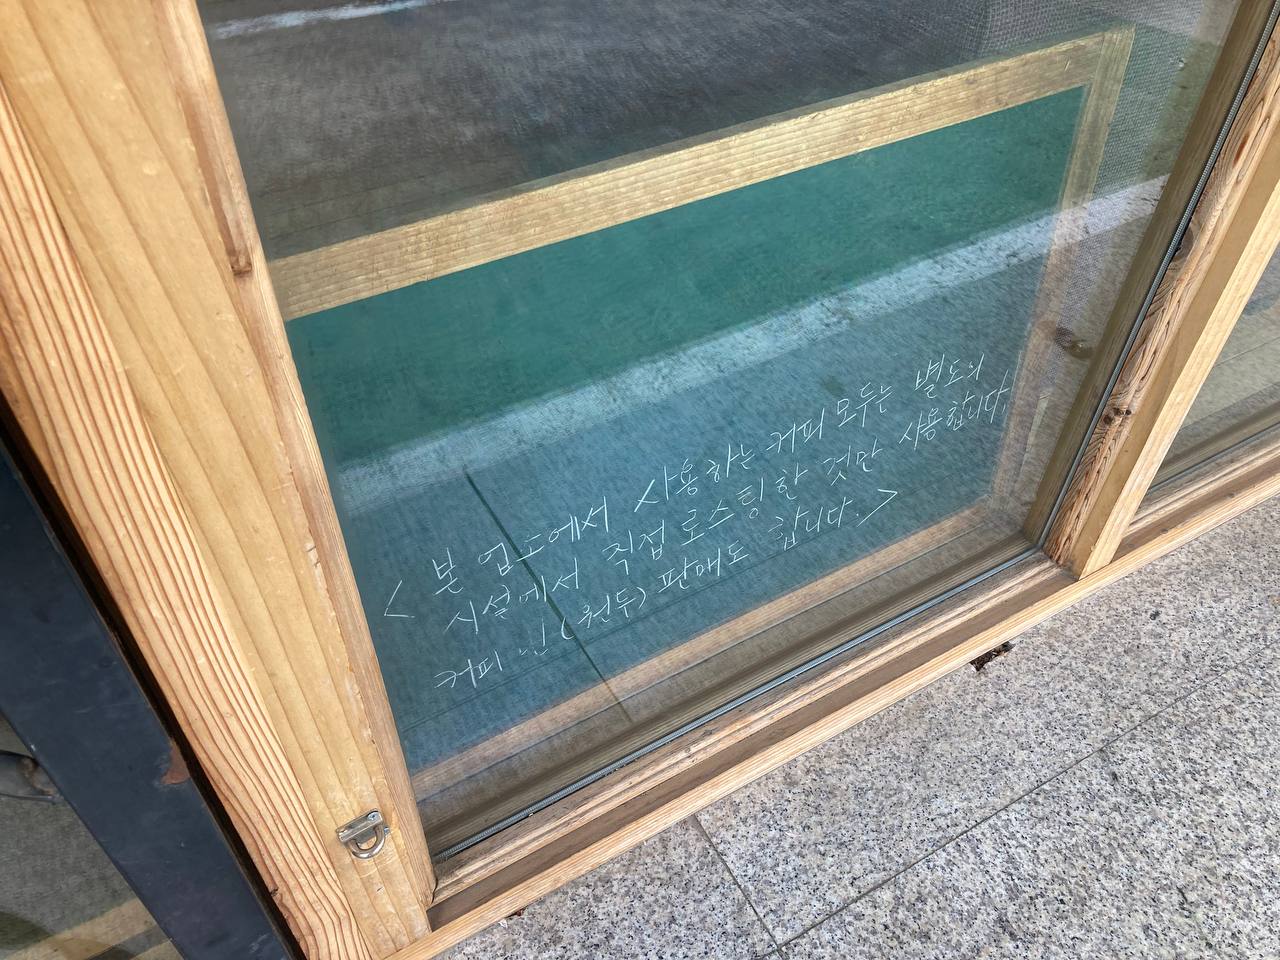 < 본 업소에서 사용하는 커피 모두는 별도의
시설에서 직접 로스팅한 것만 사용합니다.
커피 빈(원두) 판매도 합니다. >